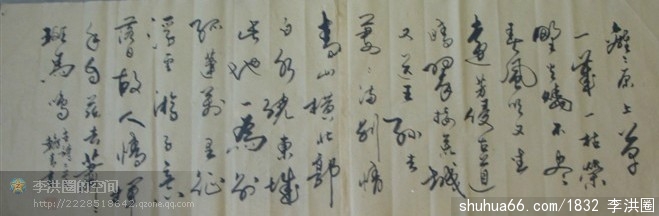 離々原上草
一歲一枯榮
野火燒不盡
春風吹又生
遠芳侵古道
晴翠接荒城
又送王孫去
萋々滿別情
青山橫北郭
白水繞東城
此地一為別
孤蓬萬里征
浮雲游子意
落日故人情 揮
手自茲去 蕭々
班馬鳴
李洪圈的空间
http://2228518642.qzone.qq.com
shuhua66.com/1832 李洪圈